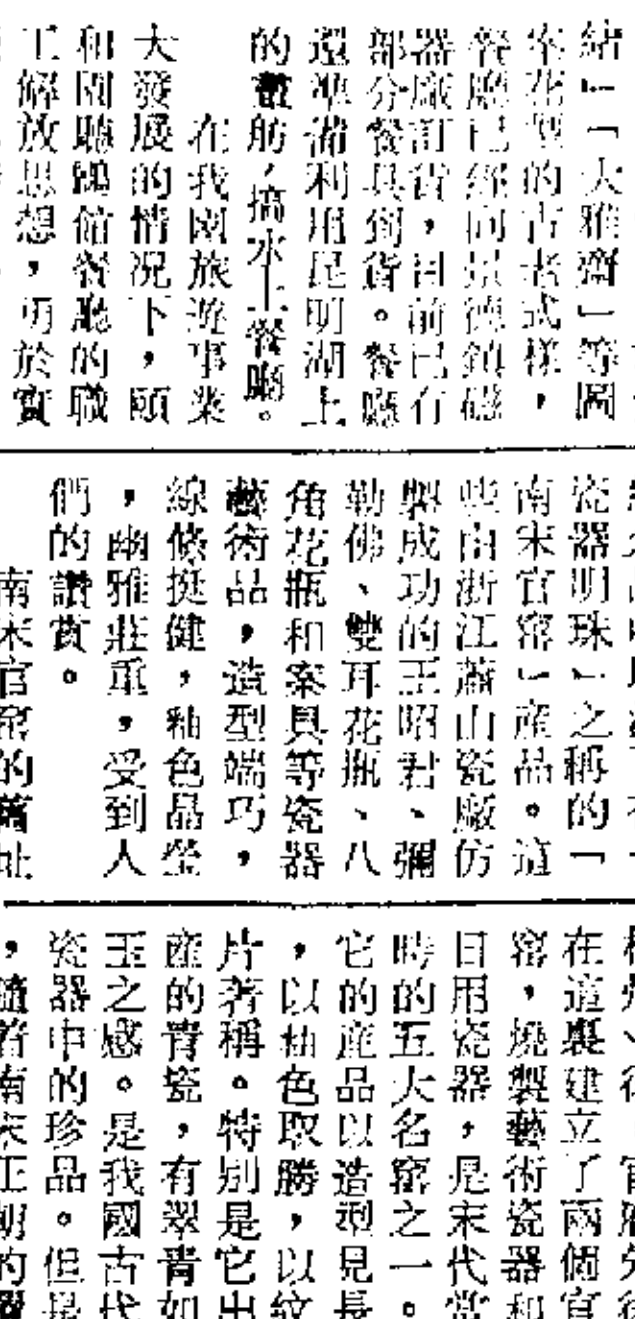 緒」「大雅齋」等圖
案花型的古老式樣,
餐廳已經向景德鎮磁
器廠訂貨,目前已有
部分餐具到貨。餐廳
還準備利用昆明湖上
的畫舫,搞水上餐廳。
在我國旅遊事業
大發展的情況下,頤
和園聽鸝館餐廳的職
工解放思想,勇於實
瓷器明珠」之稱的「
南宋官窰」產品。這
些由浙江蕭山瓷廠仿
製成功的王昭君、彌
勒佛、雙耳花瓶、八
角花瓶和案具等瓷器
藝術品,造型端巧,
線條挺健,釉色晶瑩
,幽雅莊重,受到人
們的讚賞。
南宋官窰的舊址
在這裏建立了兩個官
窰,燒製藝術瓷器和
日用瓷器,是宋代當
時的五大名窰之一。
它的產品以造型見長
,以釉色取勝,以紋
片著稱。特別是它出
產的青瓷,有翠青如
玉之感。是我國古代
瓷器中的珍品。但是
,隨着南宋王朝的